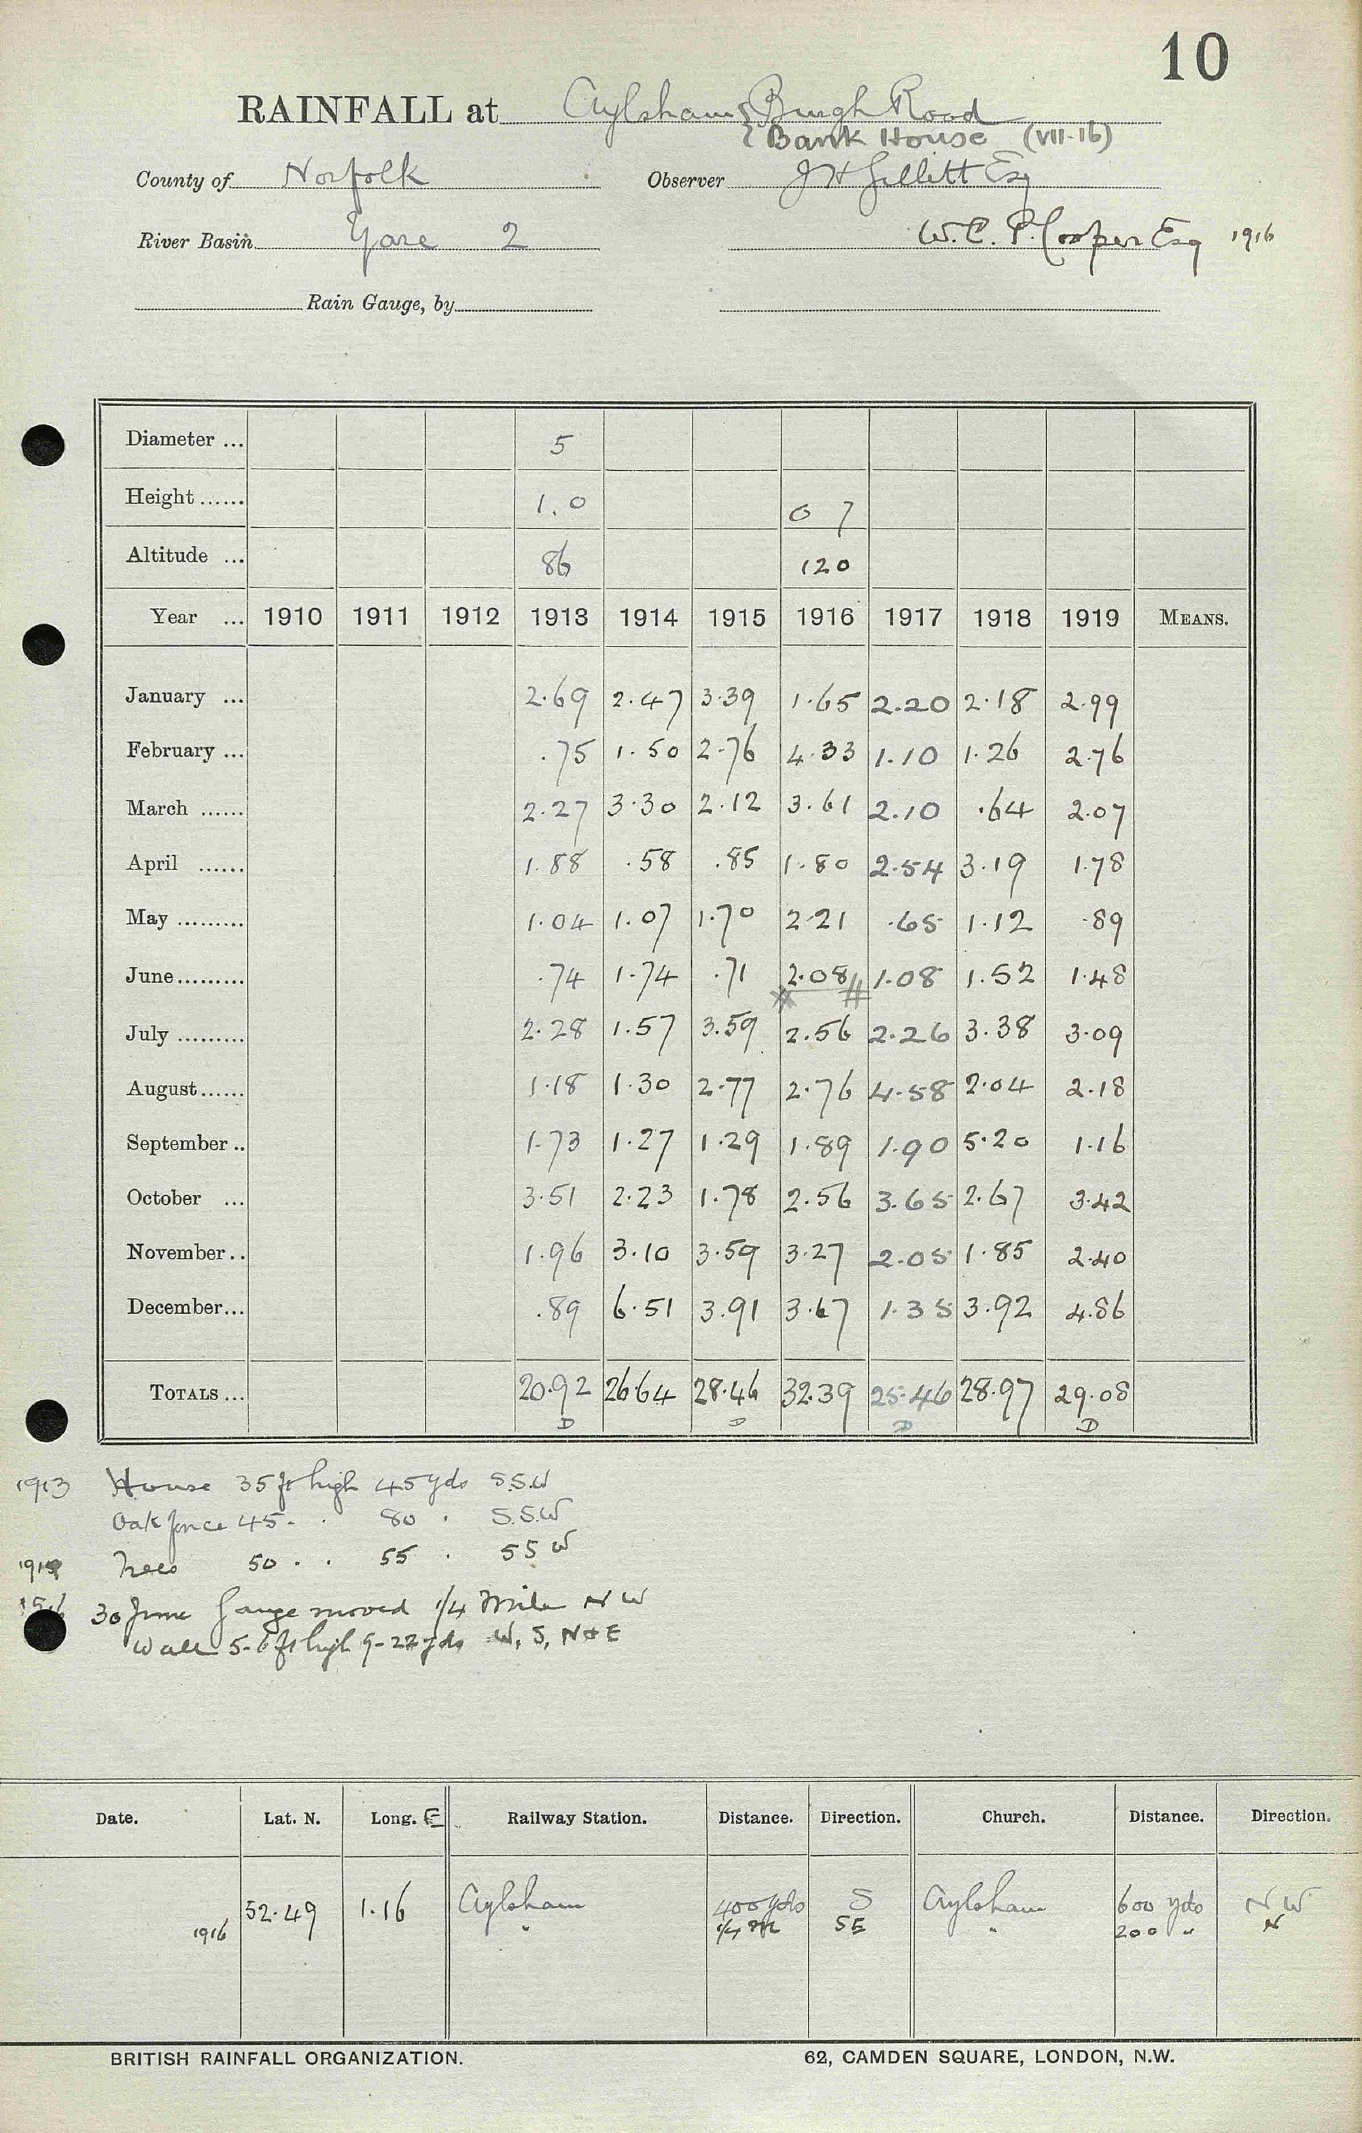 10
RAINFALL at Aylsham { Burgh Road
{ Bank House (VII-16)
County of Norfolk Observer J H Gillett Esq
River Basin Yare 2 W. C. P. Cooper Esq 1916
Rain Gauge, by
Diameter ... 5
Height ...... 1.0 0 7
Altitude ... 86 120
Year ... 1910 1911 1912 1913 1914 1915 1916 1917 1918 1919 MEANS.
January ... 2.69 2.47 3.39 1.65 2.20 2.18 2.99
February ... .75 1.50 2.76 4.33 1.10 1.26 2.76
March ...... 2.27 3.30 2.12 3.61 2.10 .64 2.07
April ...... 1.88 .58 .85 1.80 2.54 3.19 1.78
May ......... 1.04 1.07 1.70 2.21 .65 1.12 .89
June ......... .74 1.74 .71 2.08 1.08 1.52 1.48
July ......... 2.28 1.57 3.59 2.56 2.26 3.38 3.09
August ...... 1.18 1.30 2.77 2.76 4.58 2.04 2.18
September .. 1.73 1.27 1.29 1.89 1.90 5.20 1.16
October ... 3.51 2.23 1.78 2.56 3.65 2.67 3.42
November .. 1.96 3.10 3.59 3.27 2.05 1.85 2.40
December ... .89 6.51 3.91 3.67 1.35 3.92 4.86
TOTALS ... 20.92 26.64 28.46 32.39 25.46 28.97 29.08
D D D D
1913 House 35 ft high 45 yds S.S.W
Oak fence 45 . . 80 . S.S.W
Trees 50 . . 55 . SSW
1916 30 June Gauge moved 1/4 Mile NW
Wall 5-6 ft high 9-22 yds W, S, N & E
Date. Lat. N. Long. E Railway Station. Distance. Direction. Church. Distance. Direction.
52.49 1.16 Aylsham 400 yds S Aylsham 600 yds NW
1916 " 1/4 m SE " 200 " N
BRITISH RAINFALL ORGANIZATION. 62, CAMDEN SQUARE, LONDON, N.W.